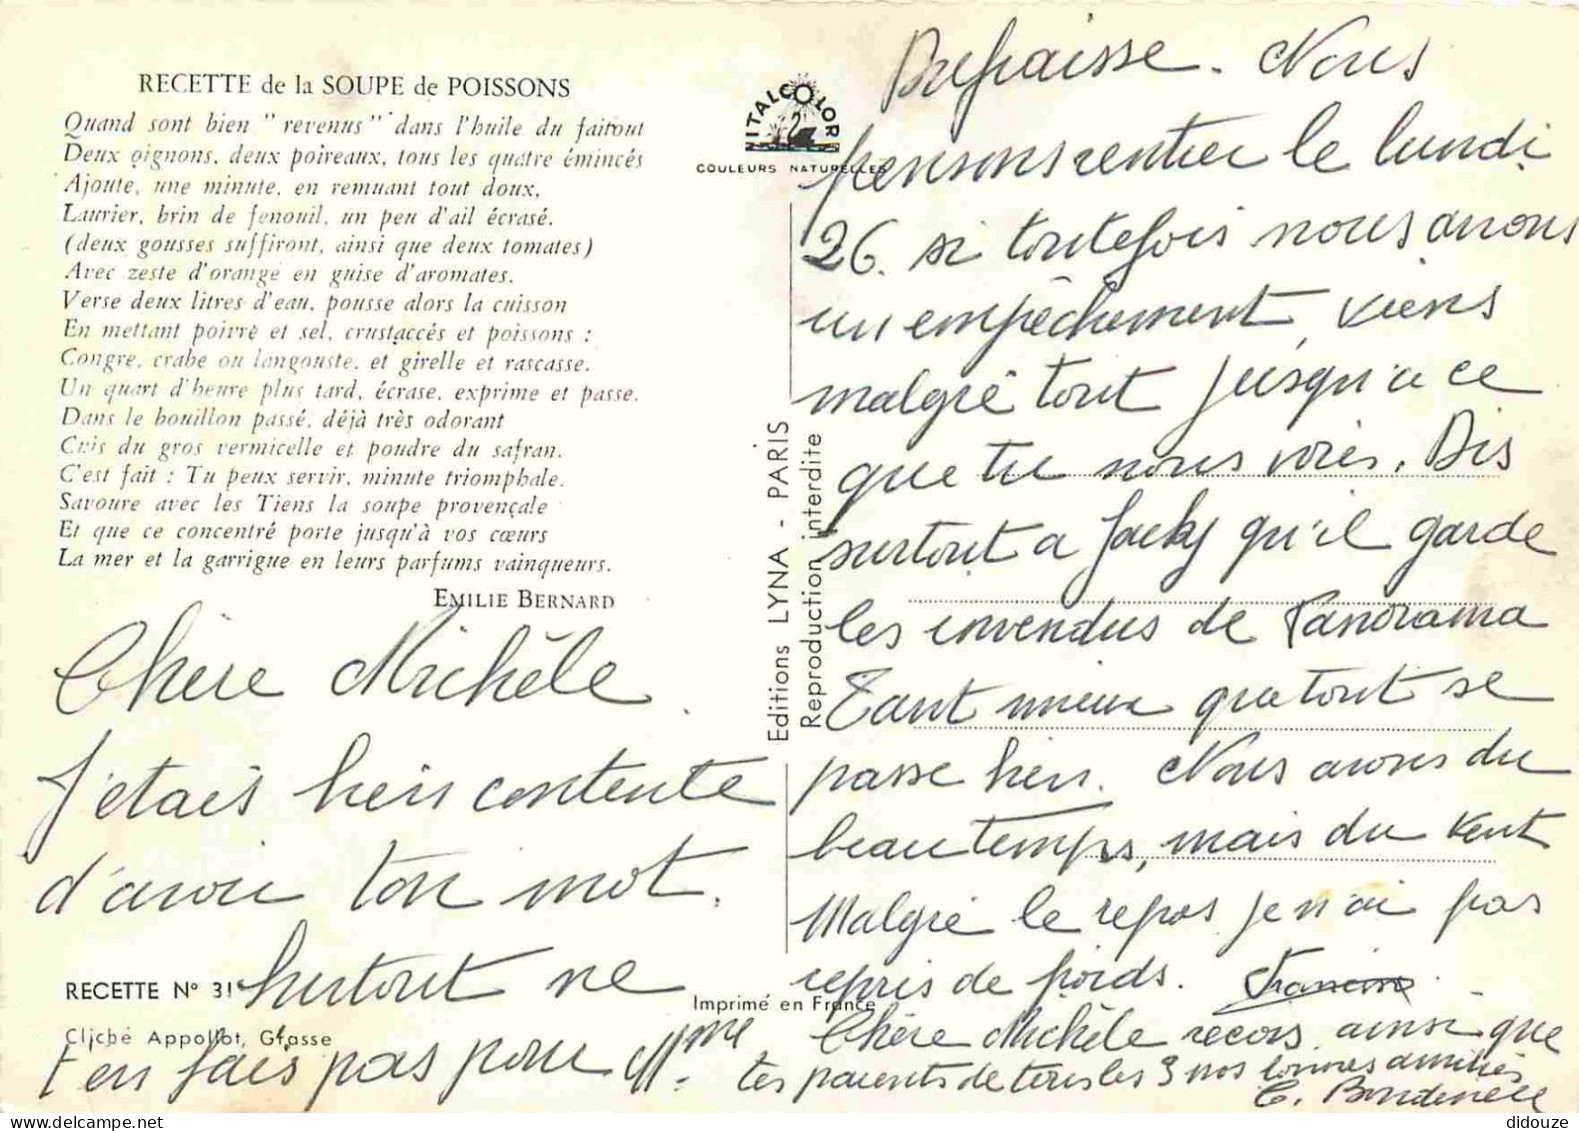 RECETTE de la SOUPE de POISSONS
Quand sont bien "revenus" dans l'huile du faitout
Deux oignons, deux poireaux, tous les quatre émincés
Ajoute, une minute, en remuant tout doux,
Laurier, brin de fenouil, un peu d'ail écrasé.
(deux gousses suffiront, ainsi que deux tomates)
Avec zeste d'orange en guise d'aromates.
Verse deux litres d'eau, pousse alors la cuisson
En mettant poivre et sel, crustaccés et poissons :
Congre, crabe ou langouste, et girelle et rascasse.
Un quart d'heure plus tard, écrase, exprime et passe.
Dans le bouillon passé, déjà très odorant
Cuis du gros vermicelle et poudre du safran.
C'est fait : Tu peux servir, minute triomphale.
Savoure avec les Tiens la soupe provençale
Et que ce concentré porte jusqu'à vos cœurs
La mer et la garrigue en leurs parfums vainqueurs.
EMILIE BERNARD
Chère Michèle.
J'étais bien contente
d'avoir ton mot.
Surtout ne
t'en fais pas pour Mme
RECETTE N° 31
Cliché Appollot, Grasse
ITALCOLOR
COULEURS NATURELLES
Editions LYNA - PARIS
Reproduction interdite
Imprimé en France
Dufraisse. Nous
pensons rentrer le lundi
26. si toutefois nous avons
un empêchement, viens
malgré tout jusqu'a ce
que tu nous voies. Dis
surtout a Jacky qu'il garde
les invendus de Panorama
Tant mieux que tout se
passe bien. Nous avons du
beau temps, mais du vent
Malgré le repos je n'ai pas
repris de poids. Francine
Chère Michèle recois ainsi que
tes parents de tous les 3 nos bonnes amitiés
didouze